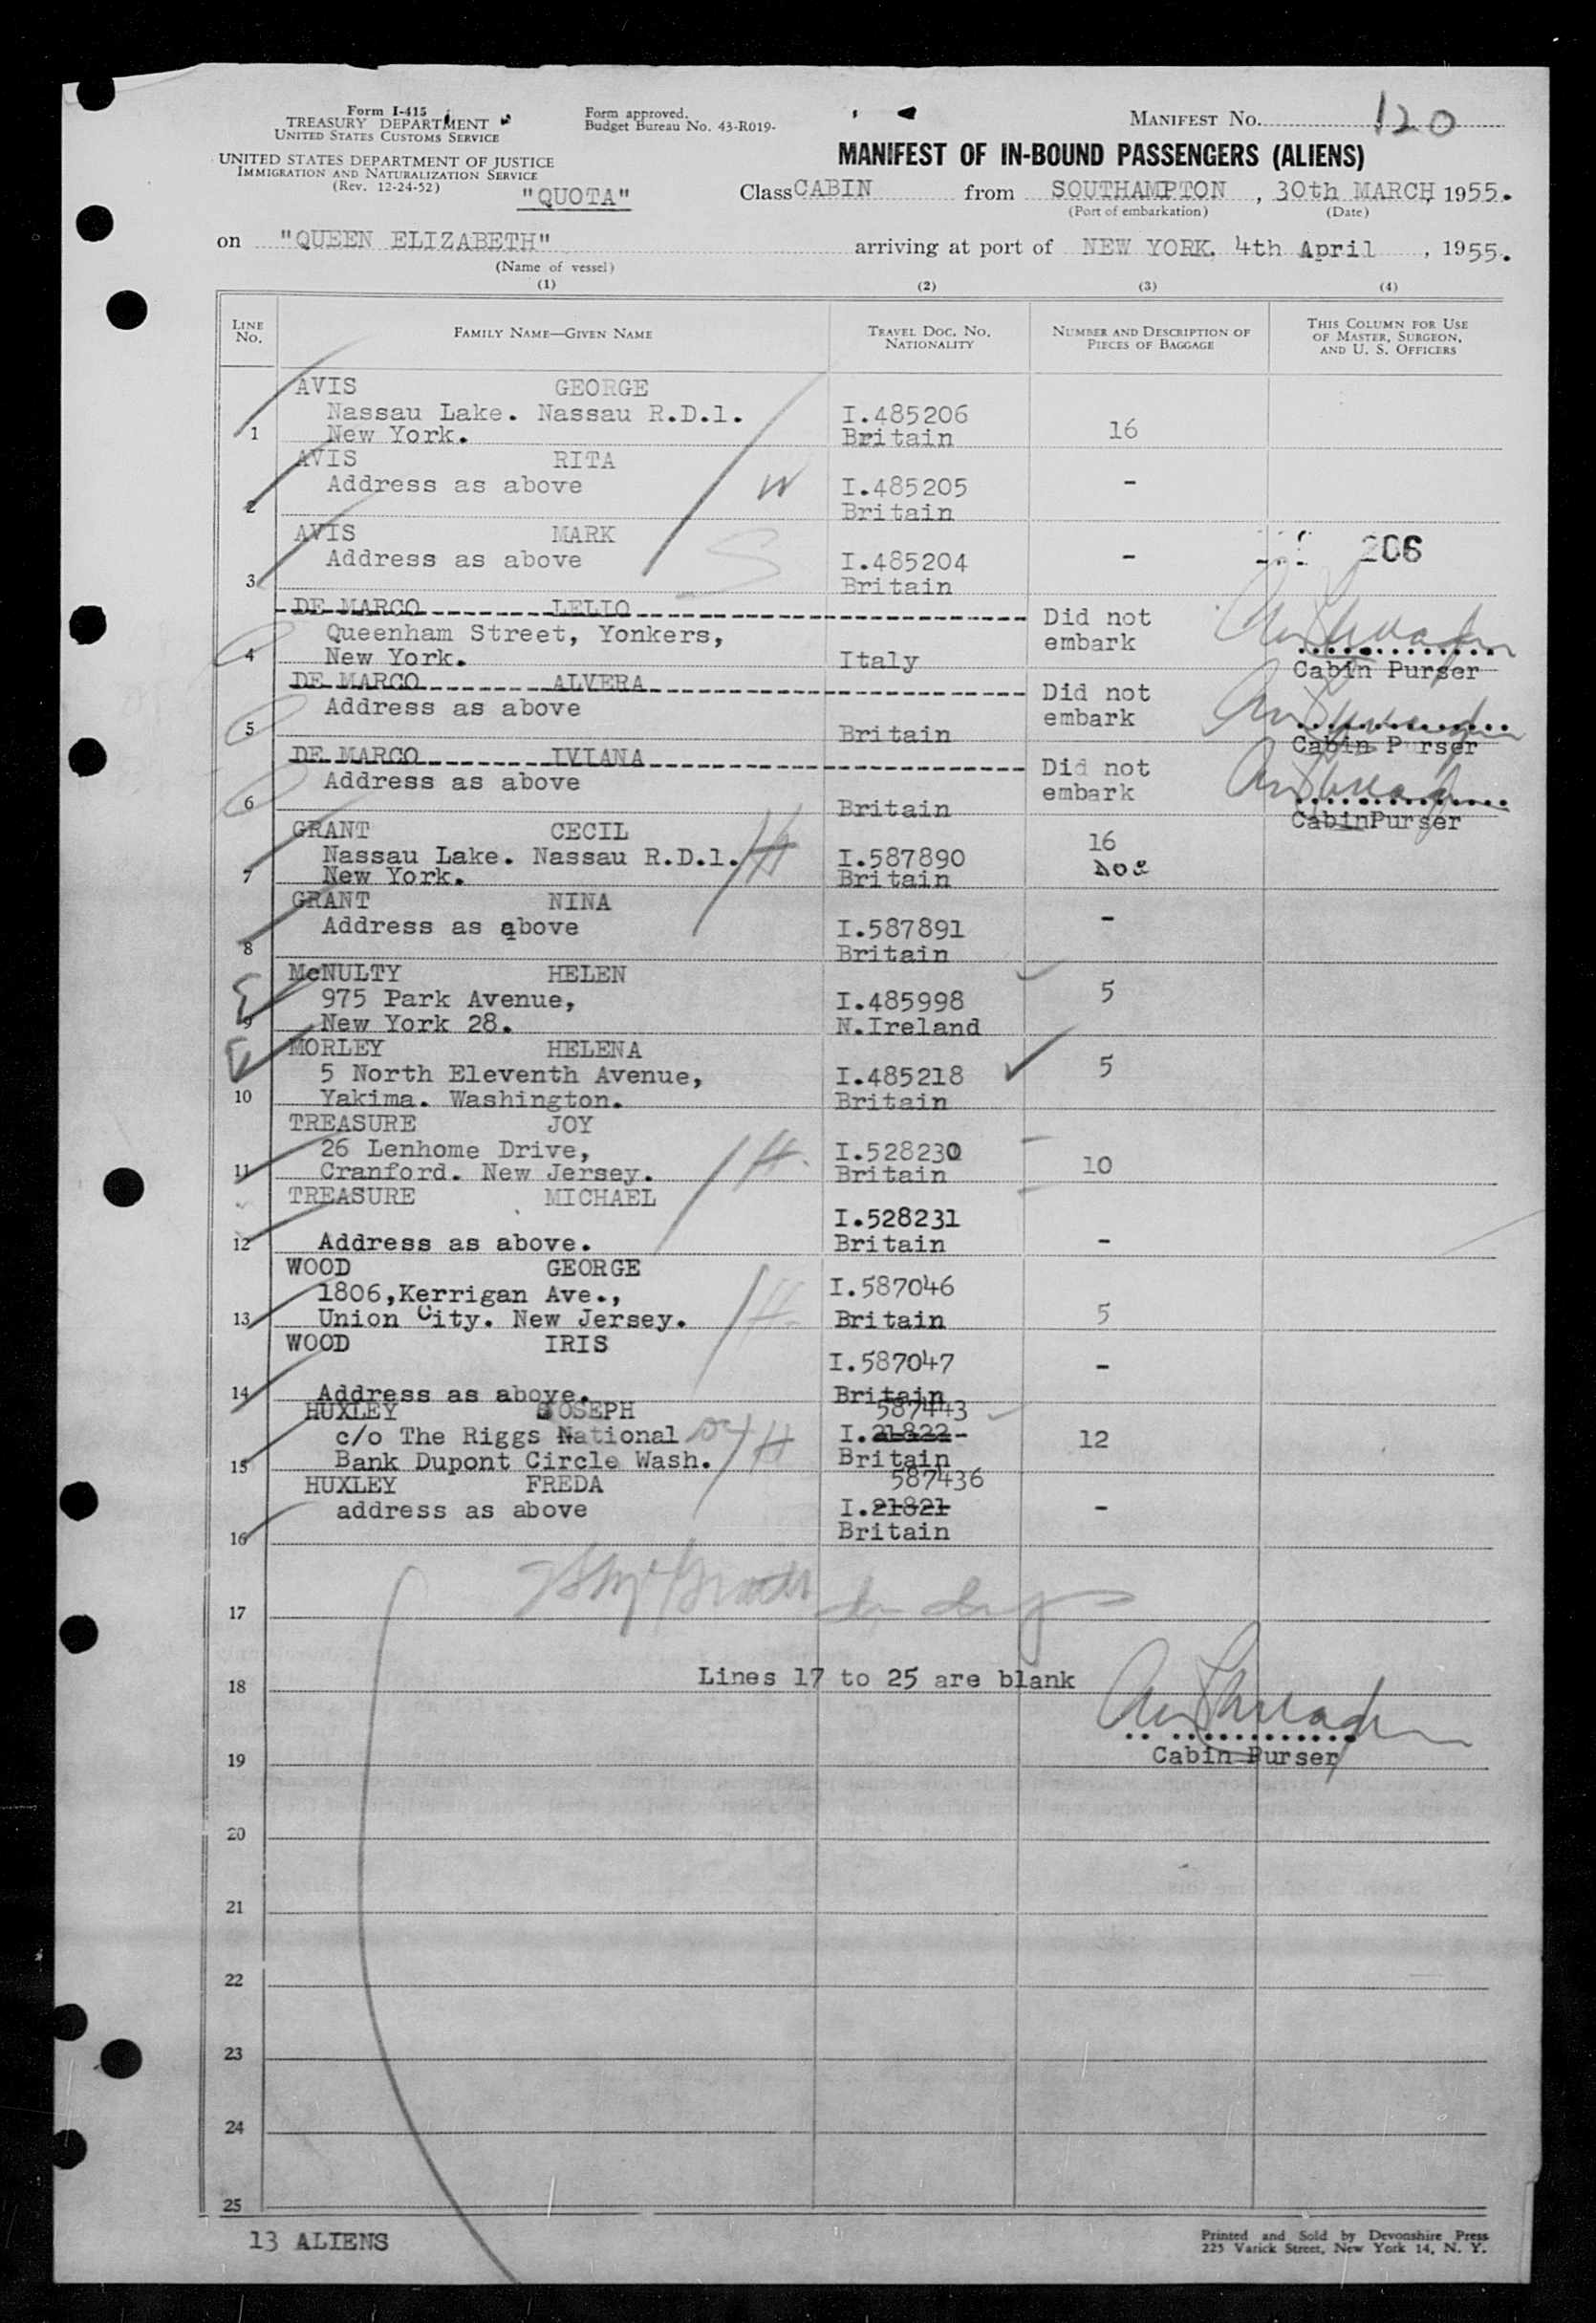 Form I-415
TREASURY DEPARTMENT
UNITED STATES CUSTOMS SERVICE
UNITED STATES DEPARTMENT OF JUSTICE
IMMIGRATION AND NATURALIZATION SERVICE
(Rev. 12-24-52)
Form approved.
Budget Bureau No. 43-R019-
MANIFEST NO. 120
MANIFEST OF IN-BOUND PASSENGERS (ALIENS)
"QUOTA" Class CABIN from SOUTHAMPTON, 30th MARCH, 1955.
(Port of embarkation) (Date)
on "QUEEN ELIZABETH" arriving at port of NEW YORK. 4th April, 1955.
(Name of vessel)
(1) (2) (3) (4)
LINE NO. FAMILY NAME—GIVEN NAME TRAVEL DOC. NO. NATIONALITY NUMBER AND DESCRIPTION OF PIECES OF BAGGAGE THIS COLUMN FOR USE OF MASTER, SURGEON, AND U. S. OFFICERS
AVIS GEORGE
Nassau Lake. Nassau R.D.1. I.485206
1 New York. Britain 16
AVIS RITA
Address as above W I.485205 -
2 Britain
AVIS MARK 206
Address as above S I.485204 -
3 Britain
DE MARCO LELIO Did not
Queenham Street, Yonkers, embark
4 New York. Italy Cabin Purser
DE MARCO ALVERA Did not
Address as above embark
5 Britain Cabin Purser
DE MARCO IVIANA Did not
Address as above embark
6 Britain CabinPurser
GRANT CECIL 16
Nassau Lake. Nassau R.D.1. H I.587890
7 New York. Britain
GRANT NINA
Address as above I.587891 -
8 Britain
McNULTY HELEN
975 Park Avenue, I.485998 5
9 New York 28. N.Ireland
MORLEY HELENA
5 North Eleventh Avenue, I.485218 5
10 Yakima. Washington. Britain
TREASURE JOY
26 Lenhome Drive, H. I.528230
11 Cranford. New Jersey. Britain 10
TREASURE MICHAEL
I.528231
12 Address as above. Britain -
WOOD GEORGE
1806,Kerrigan Ave., H. I.587046
13 Union City. New Jersey. Britain 5
WOOD IRIS
I.587047 -
14 Address as above. Britain
HUXLEY JOSEPH 587443
c/o The Riggs National H I.21822- 12
15 Bank Dupont Circle Wash. Britain
HUXLEY FREDA 587436
address as above I.21821 -
16 Britain
17
18 Lines 17 to 25 are blank
19 Cabin Purser
20
21
22
23
24
25
13 ALIENS
Printed and Sold by Devonshire Press
225 Varick Street, New York 14, N. Y.